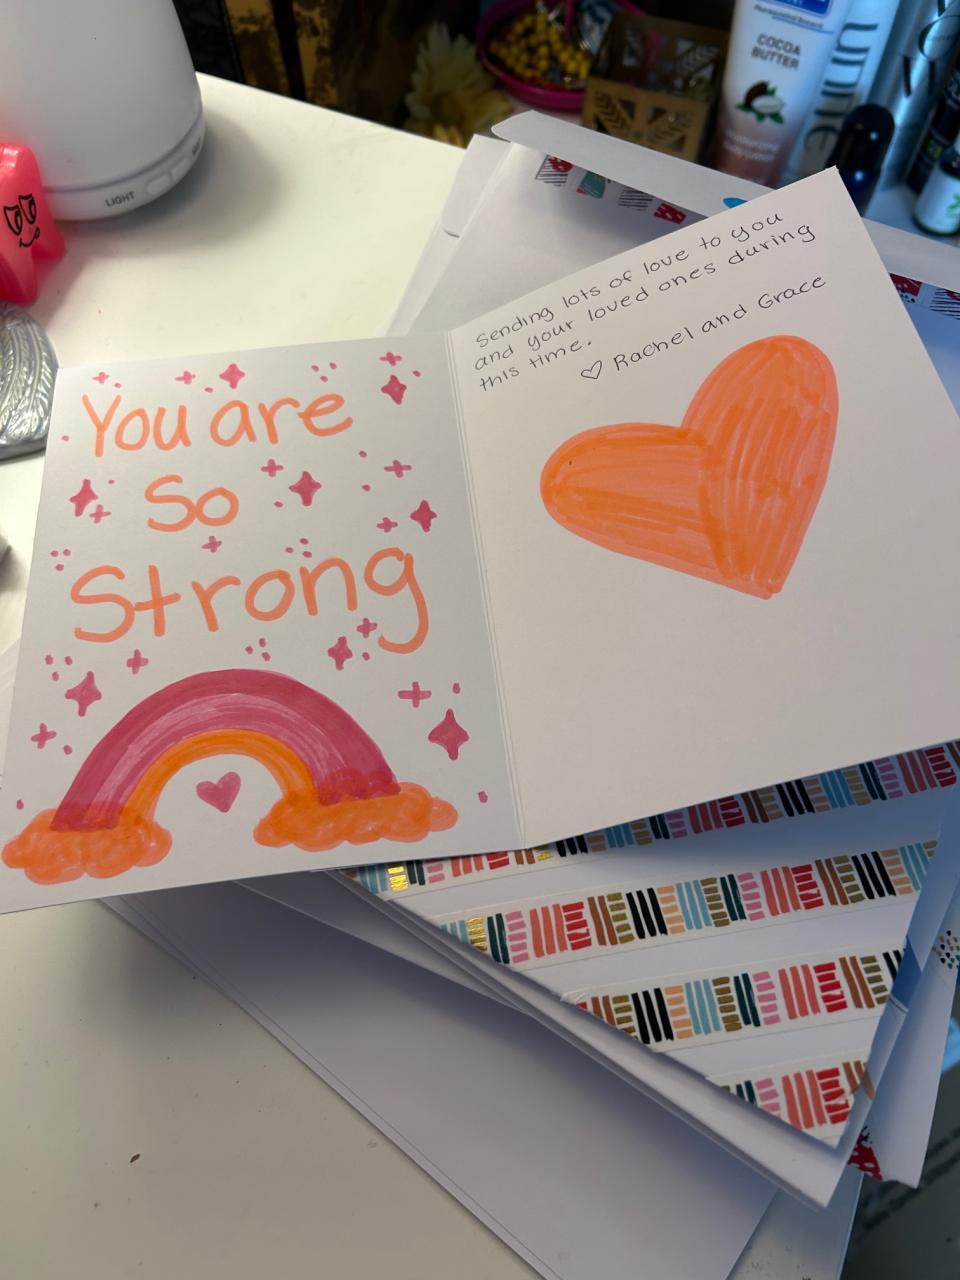 LIGHT
COCOA
BUTTER
You are
So
Strong
Sending lots of love to you
and your loved ones during
this time.
♡ Rachel and Grace